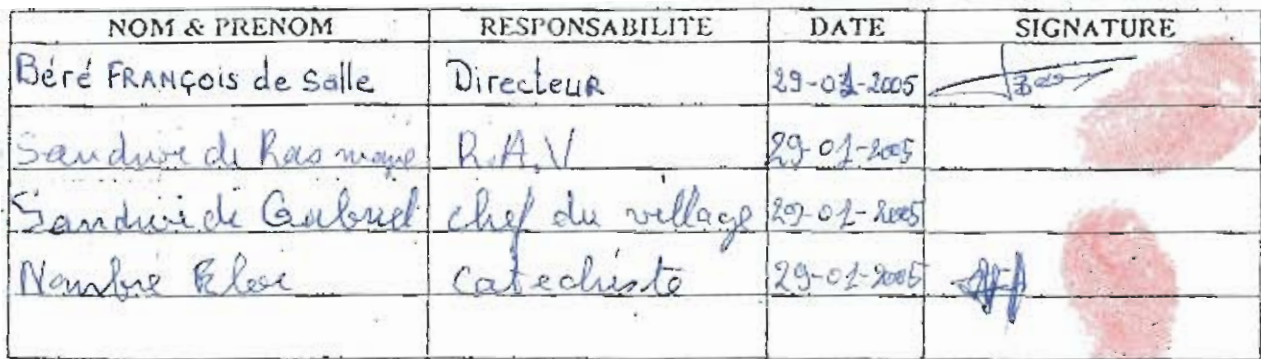 NOM & PRENOM RESPONSABILITE DATE SIGNATURE
Béré FRANÇOIS de Salle Directeur 29-01-2005
Sandwidi Rasmané R.A.V 29-01-2005
Sandwidi Gabriel chef du village 29-01-2005
Nombré Eloi Catechiste 29-01-2005